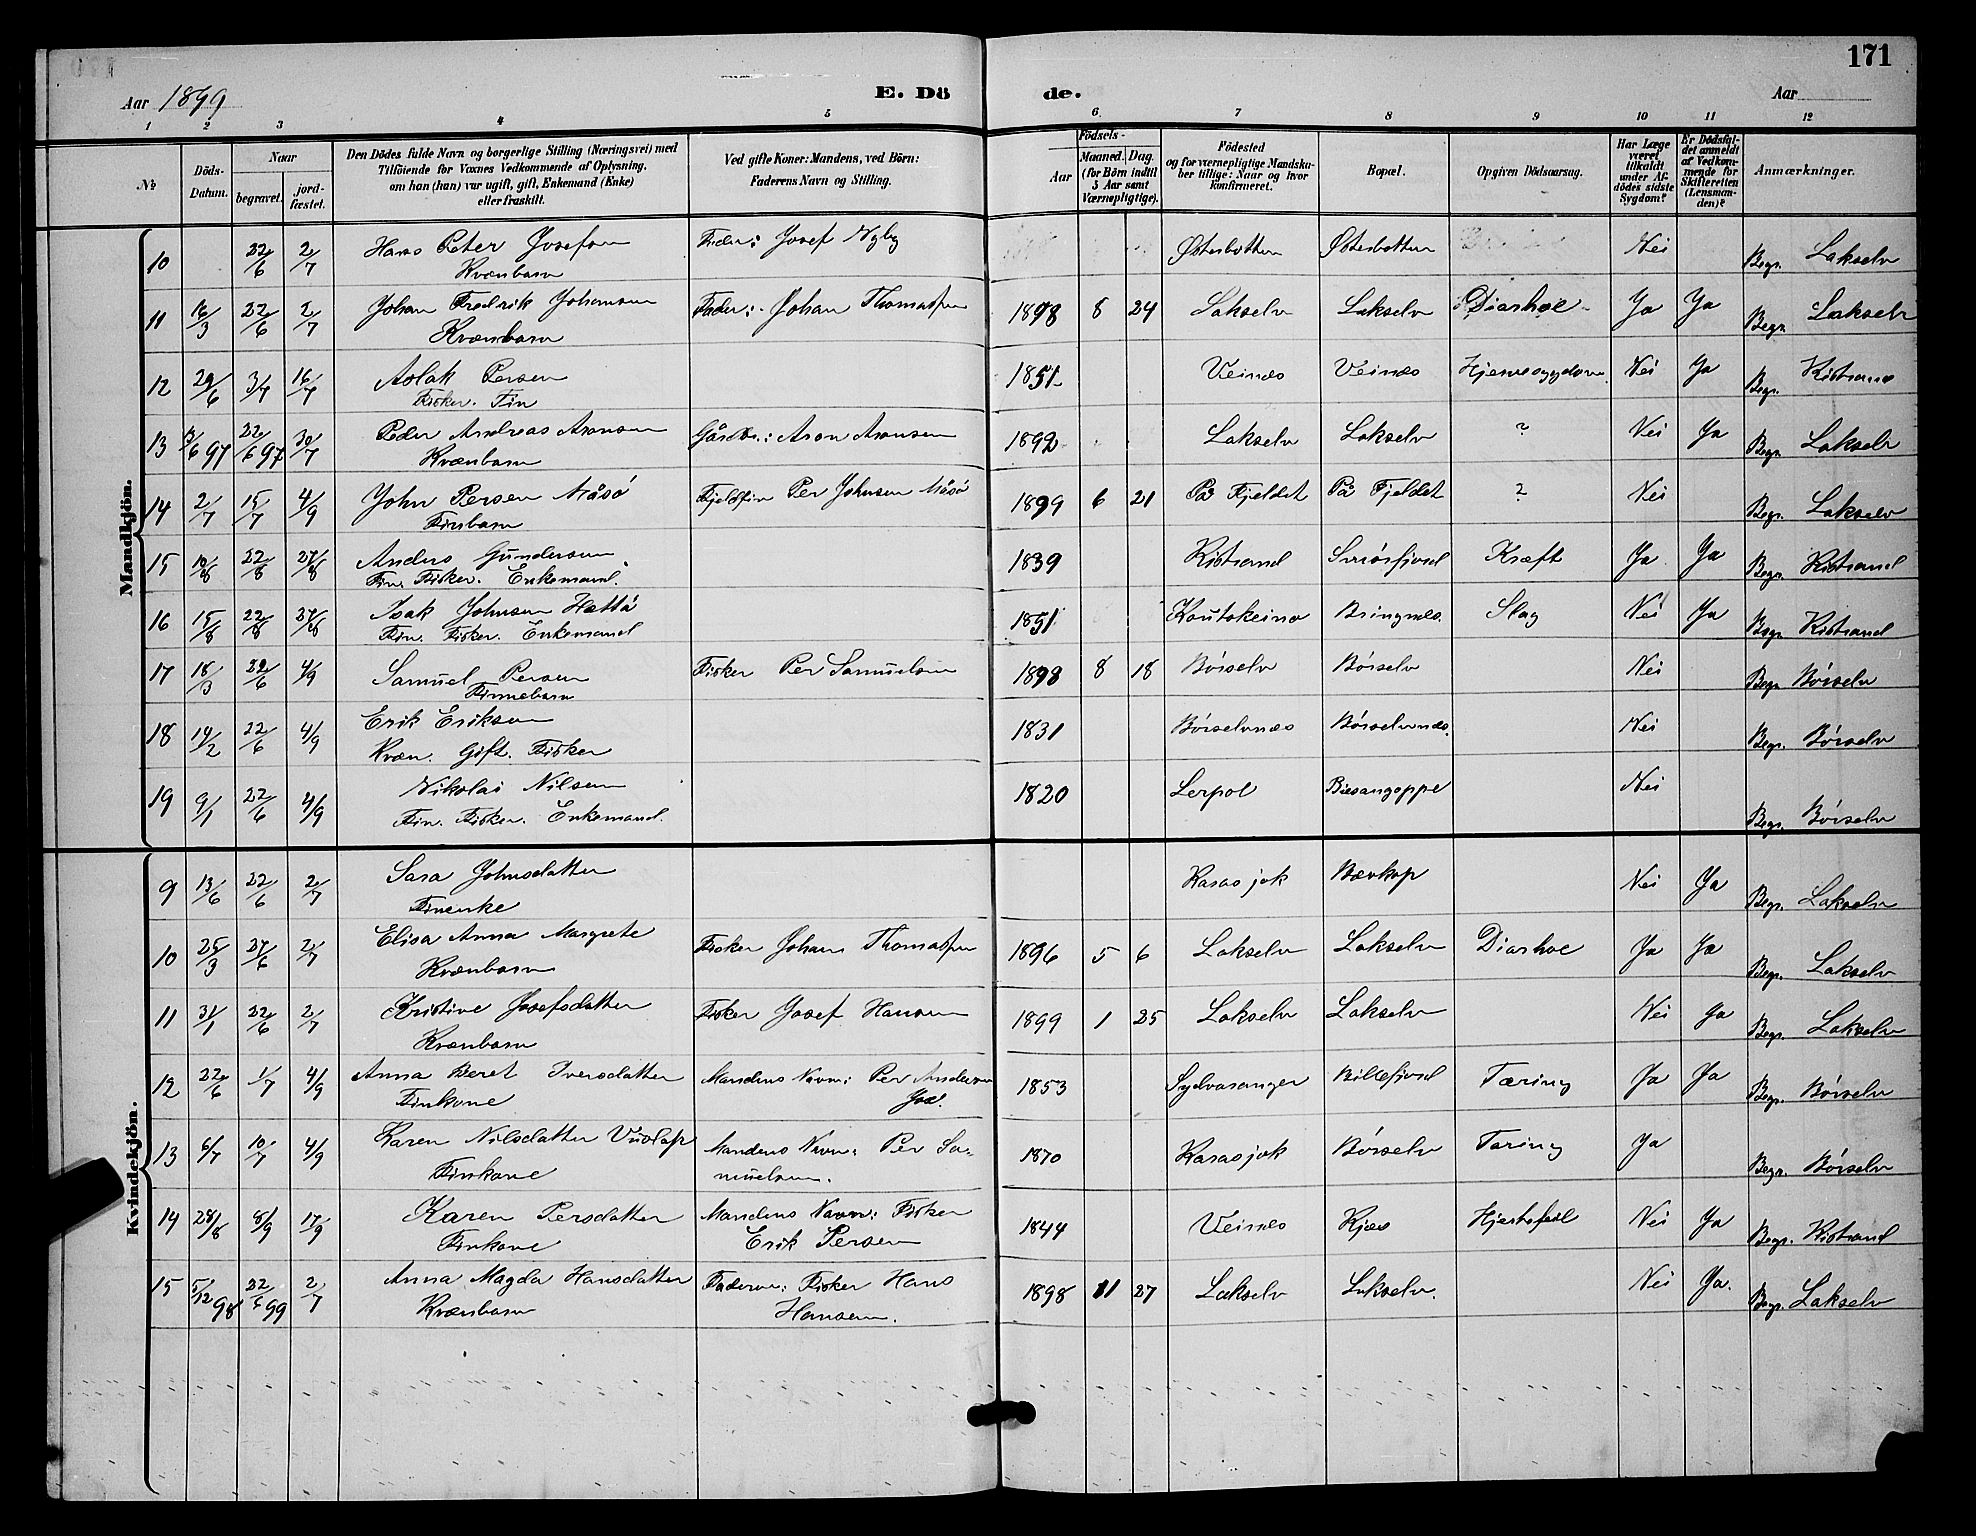 171
Aar 1899
E. Dö
de.
Aar
1 2 3 4 5 6 7 8 9 10 11 12
№
Döds-Datum.
Naar
begravet.
jord-fæstet.
Den Dödes fulde Navn og borgerlige Stilling (Næringsvei) med
Tilföiende for Voxnes Vedkommende af Oplysning,
om han (hun) var ugift, gift, Enkemand (Enke)
eller fraskilt.
Ved gifte Koner: Mandens, ved Börn:
Faderens Navn og Stilling.
Födsels-
Aar
Maaned. Dag.
(for Börn indtil
5 Aar samt
Værnepligtige).
Födested
og for værnepligtige Mandska-
ber tillige: Naar og hvor
konfirmeret.
Bopæl.
Opgiven Dödsaarsag.
Har Læge
været
tilkaldt
under Af-
dödes sidste
Sygdom?
Er Dödsfal-
det anmeldt
af Vedkom-
mende for
Skifteretten
(Lensman-
den)?
Anmærkninger.
Mandkjön.
10 22/6 2/7 Hans Peter Josefsen Fader: Josef Nyby Østerbotten Østerbotten Nei Begr. Lakselv
Kvænbarn
11 16/3 22/6 2/7 Johan Fredrik Johansen Fader: Johan Thomassen 1898 8 24 Lakselv Lakselv Diarhoe Ja Ja Begr. Lakselv
Kvænbarn
12 29/6 3/7 16/7 Aslak Persen 1851 Veinæs Veinæs Hjernesygdom Nei Ja Begr. Kistrand
Fisker. Fin
13 /6 97 22/6 97 30/7 Peder Andreas Aronsen Gårdbr.: Aron Aronsen 1892 Lakselv Lakselv ? Nei Ja Begr. Lakselv
Kvænbarn
14 2/7 15/7 4/9 John Persen Måsö Fjeldfin Per Johnsen Måsö 1899 6 21 På Fjeldet På Fjeldet ? Nei Begr. Lakselv
Finbarn
15 10/8 22/8 27/8 Anders Gundersen 1839 Kistrand Smörfjord Kræft Ja Ja Begr. Kistrand
Fin. Fisker. Enkemand.
16 15/8 22/8 27/8 Isak Johnsen Hætta 1851 Koutokeino Bringnæs Slag Nei Ja Begr. Kistrand
Fin. Fisker. Enkemand
17 18/3 22/6 4/9 Samuel Persen Fisker Per Samuelsen 1898 8 18 Börselv Börselv Nei Begr. Börselv
Finnebarn
18 14/2 22/6 4/9 Erik Eriksen 1831 Börselvnæs Börselvnæs. Nei Begr. Börselv
Kvæn. Gift. Fisker
19 9/1 22/6 4/9 Nikolai Nilsen 1820 Lerpol Nei Begr. Börselv
Fin. Fisker. Enkemand.
Kvindekjön.
9 13/6 22/6 2/7 Sara Johnsdatter Karasjok Bævkop Nei Ja Begr. Lakselv
Finenke
10 25/3 22/6 2/7 Elisa Anna Margrete Fisker Johan Thomassen 1896 5 6 Lakselv Lakselv Diarhoe Ja Ja Begr. Lakselv
Kvænbarn
11 31/1 22/6 2/7 Kristine Josefsdatter Fisker Josef Hansen 1899 1 25 Lakselv Lakselv Nei Ja Begr. Lakselv
Kvænbarn
12 22/6 1/7 4/9 Anna Beret Iversdatter Mandens Navn: Per Andersen 1853 Sydvaranger Billefjord Tæring Ja Ja Begr. Börselv
Finkone
13 6/7 10/7 4/9 Karen Nilsdatter Vuolap Mandens Navn: Per Sa- 1870 Karasjok Börselv Tæring Ja Begr. Börselv
Finkone muelsen.
14 28/8 8/9 17/9 Karen Persdatter Mandens Navn: Fisker 1844 Veinæs Kjæs Hjertefeil Nei Ja Begr. Kistrand
Finkone Erik Persen
15 5/12 98 22/6 99 2/7 Anna Magda Hansdatter Faderen: Fisker Hans 1898 11 27 Lakselv Lakselv. Nei Ja. Begr. Lakselv
Kvænbarn Hansen.